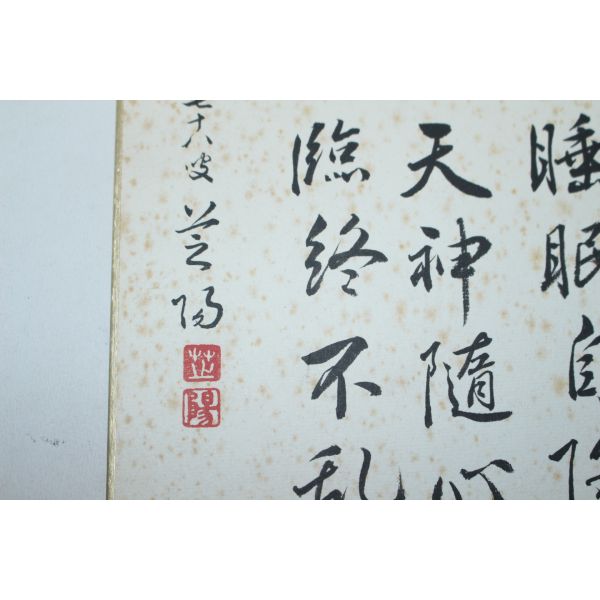 睡眠自
天神隨心
臨終不乱
七十八叟 芝陽
芝陽